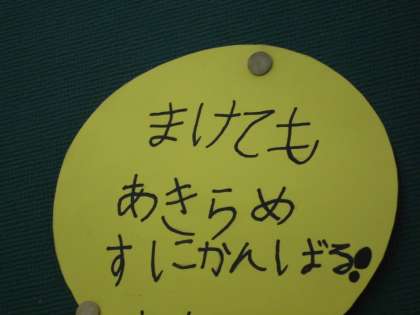 まけても
あきらめ
すにかんしばる!